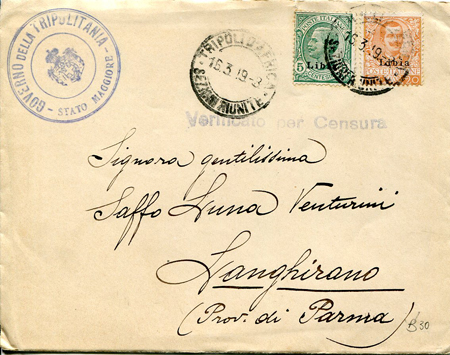 GOVERNO DELLA TRIPOLITANIA
STATO MAGGIORE
TRIPOLI D'AFRICA
16.3.19
SEZIONI RIUNITE
POSTE ITALIANE
5
Libia
16.3.19
Libia
Verificato per Censura
Signora gentilissima
Saffo Luna Venturini
Langhirano
(Prov. di Parma)
30